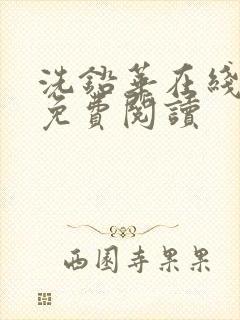 洗鉛華在綫
免費閱讀
西園寺果果